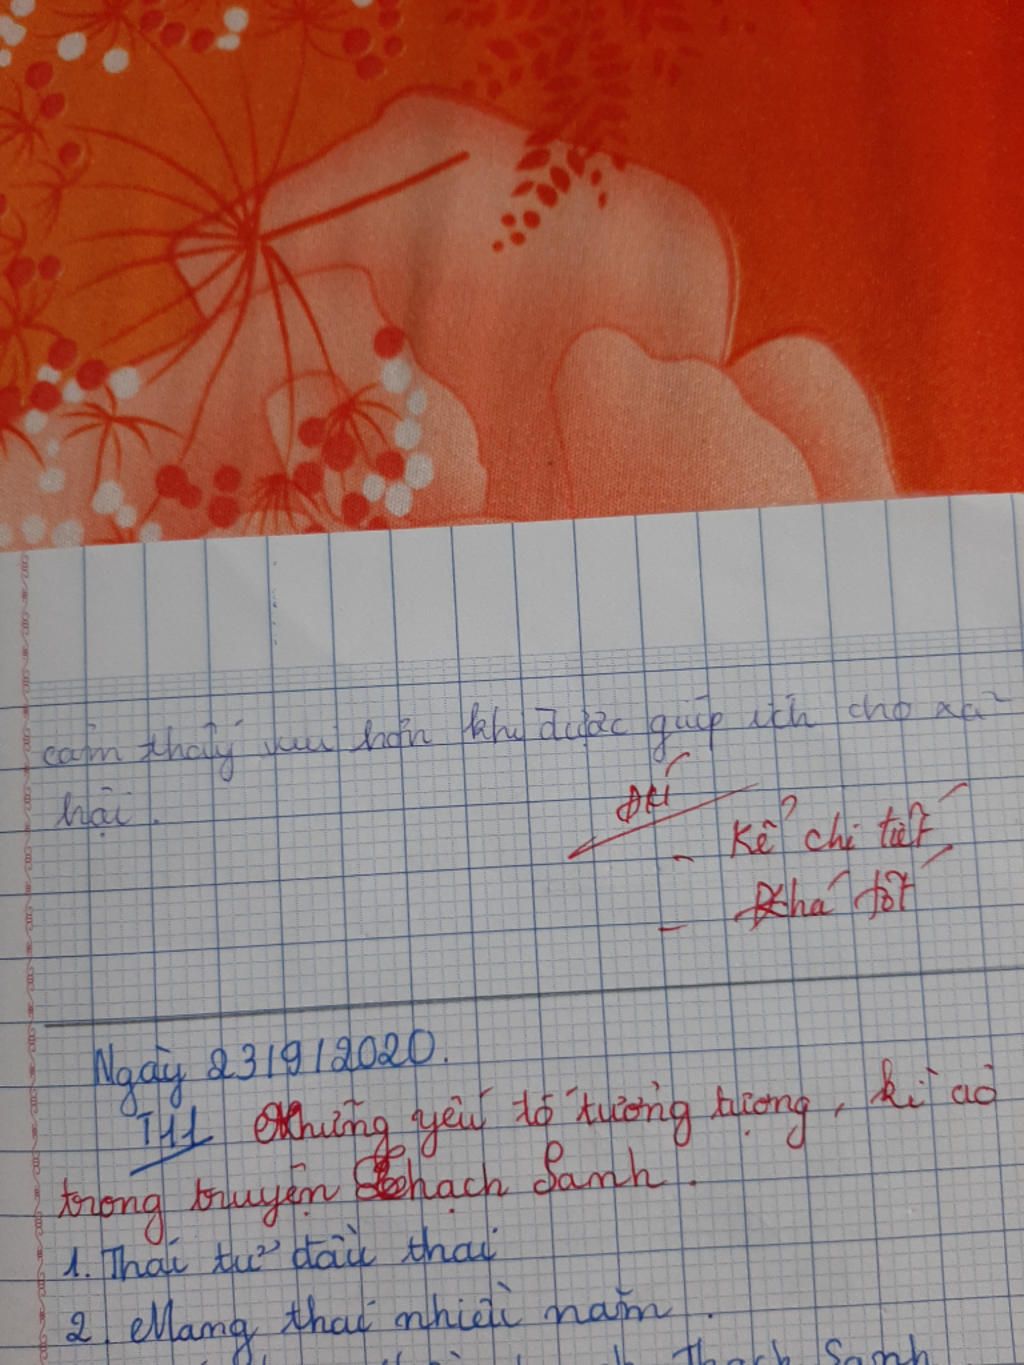 cảm thấy vui hơn khi được giúp ích cho xã
hội.
- Kể chi tiết
- Khá tốt
Ngày 23/9/2020.
T11 Những yếu tố tưởng tượng, kì ảo
trong truyện Thạch Sanh.
1. Thái tử đầu thai
2. Mang thai nhiều năm.
Thạch Sanh